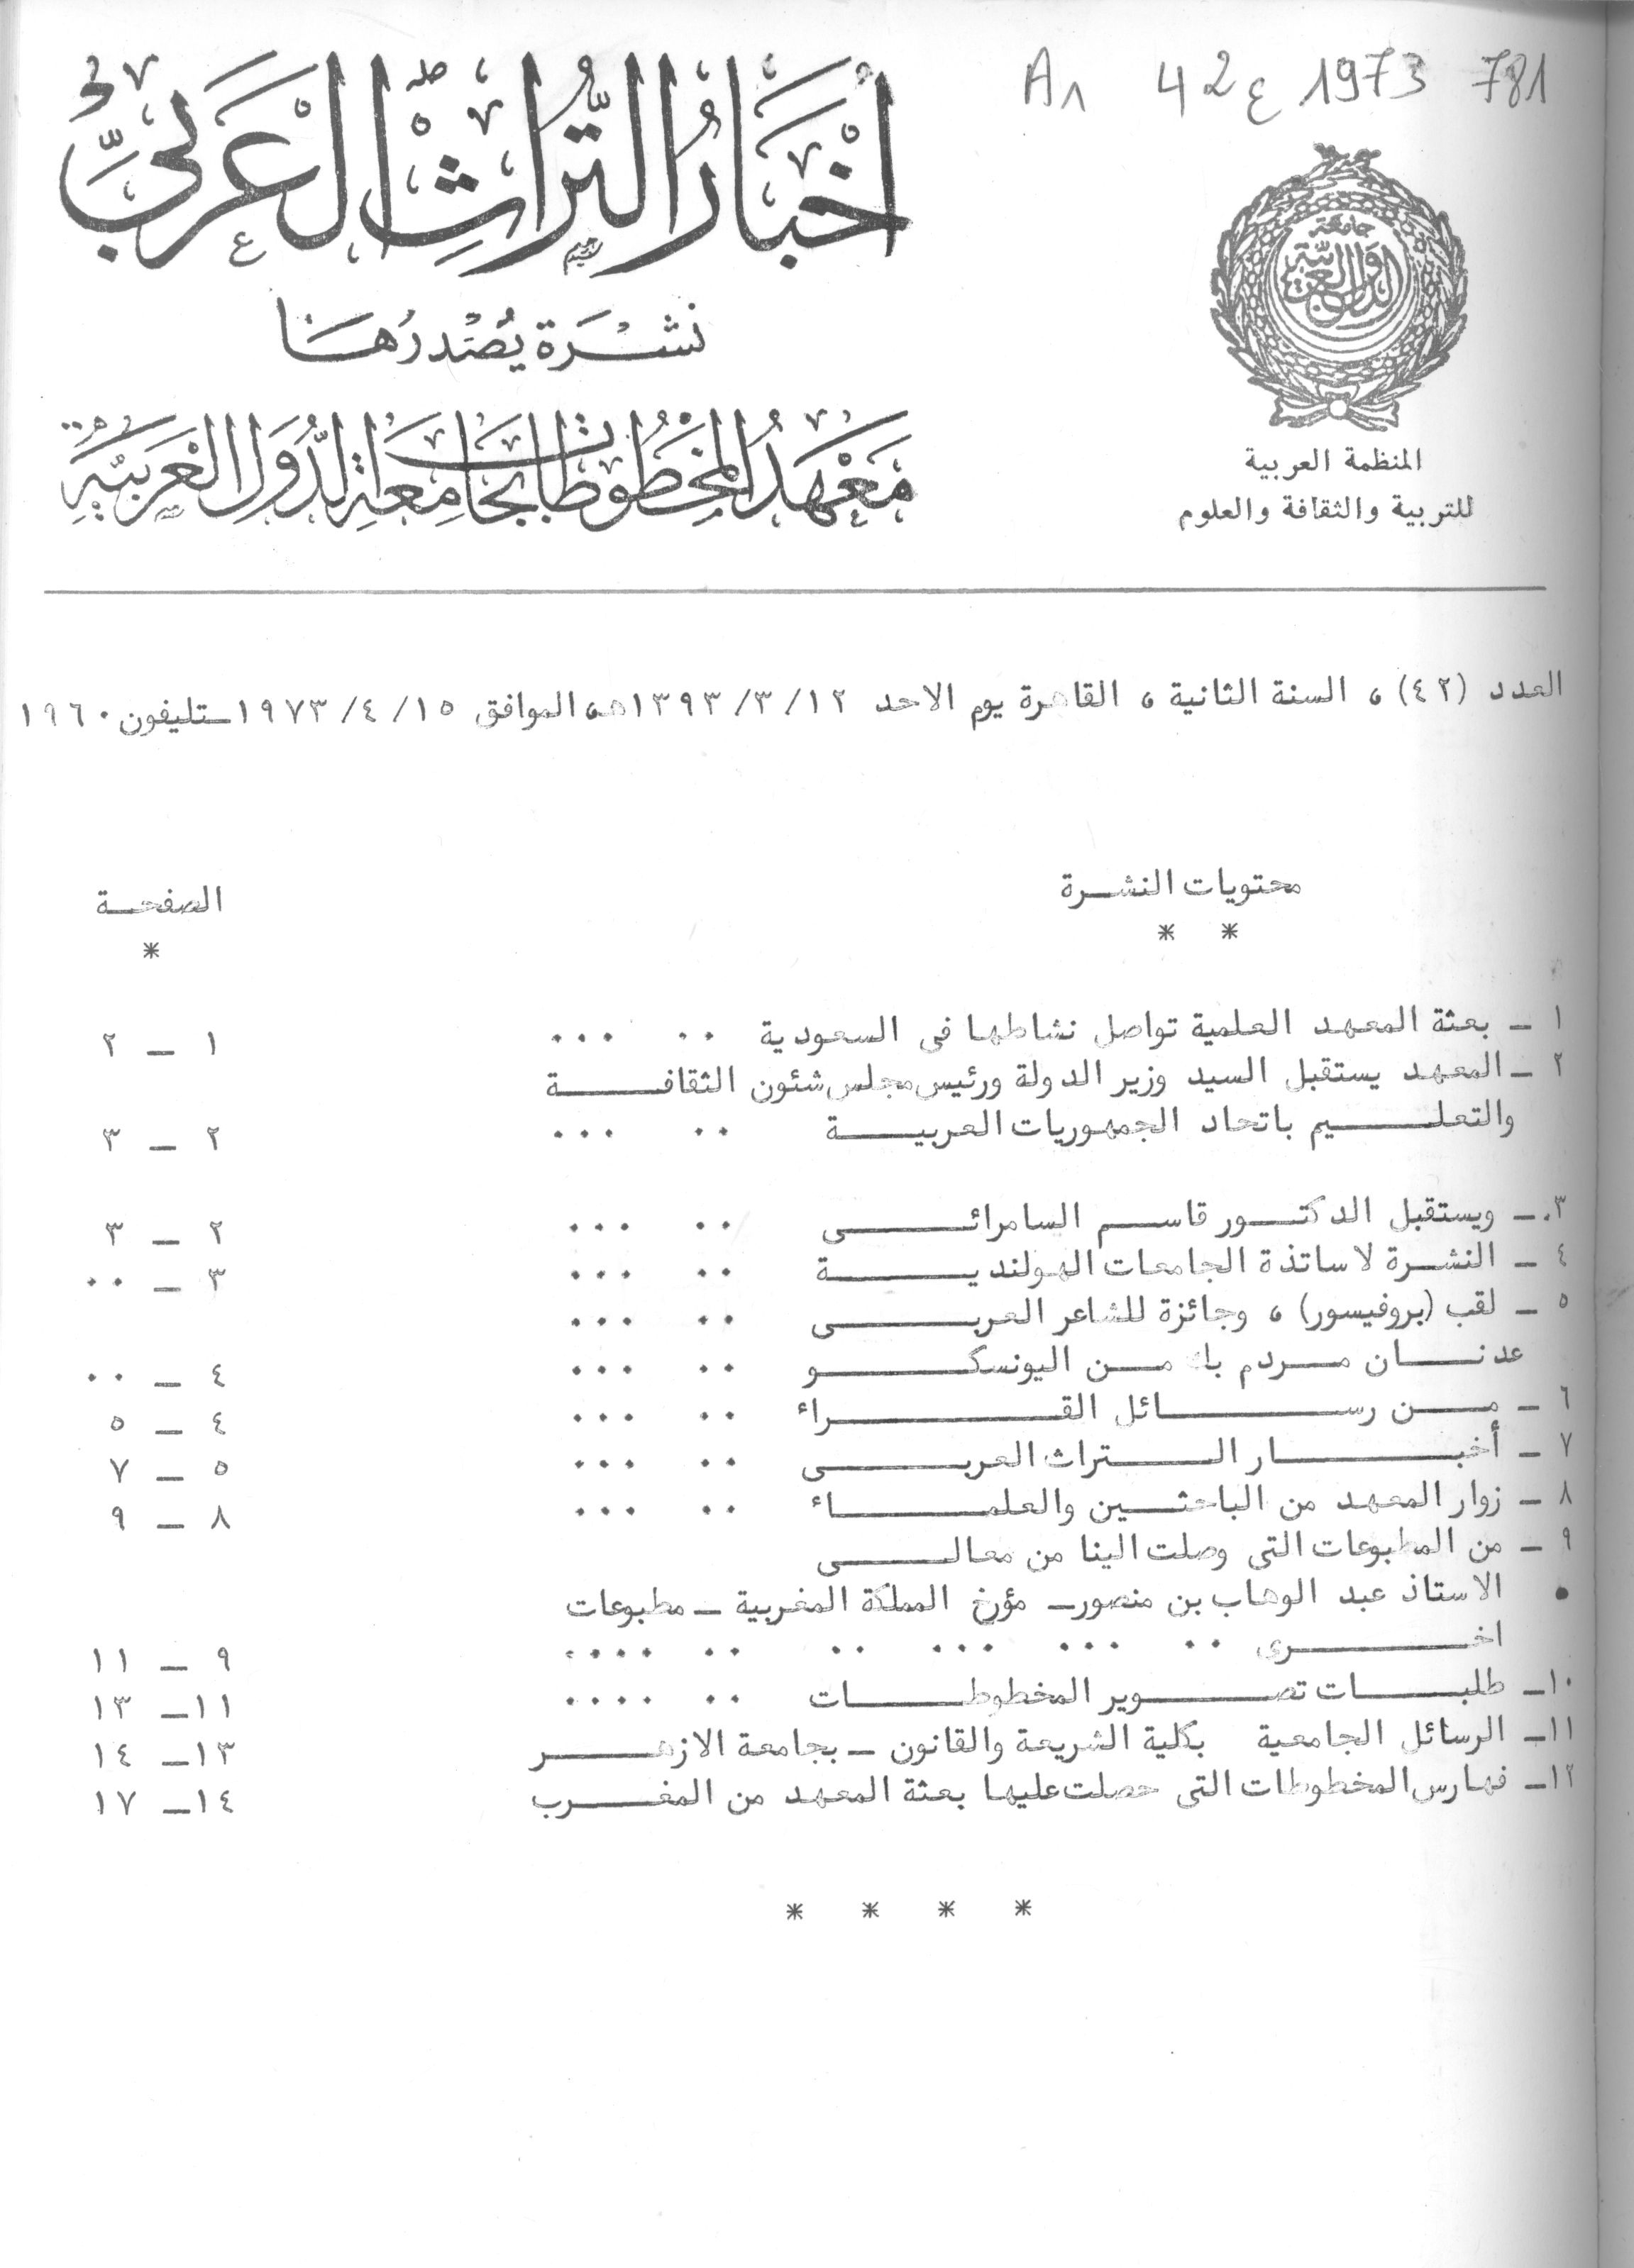 A٨ 42ع 1973 781
أخبار التراث العربي
نشرة يصدرها
معهد المخطوطات بجامعة الدول العربية
جامعة
الدول العربية
المنظمة العربية
للتربية والثقافة والعلوم
العدد (٤٢) ، السنة الثانية ، القاهرة يوم الاحد ١٣٩٣/٣/١٢هـ، الموافق ١٩٧٣/٤/١٥ ـ تليفون ١٩٦٠
محتويات النشرة الصفحة
* * *
١ ـ بعثة المعهد العلمية تواصل نشاطها فى السعودية ٠٠ ٠٠٠ ١ ـ ٢
٢ ـ المعهد يستقبل السيد وزير الدولة ورئيس مجلس شئون الثقافة
والتعليم باتحاد الجمهوريات العربية ٠٠ ٠٠٠ ٢ ـ ٣
٣ ـ ويستقبل الدكتور قاسم السامرائى ٠٠ ٠٠٠ ٢ ـ ٣
٤ ـ النشرة لاساتذة الجامعات الهولندية ٠٠ ٠٠٠ ٣ ـ ٠٠
٥ ـ لقب (بروفيسور) ، وجائزة للشاعر العربى ٠٠ ٠٠٠
عدنان مردم بك من اليونسكو ٠٠ ٠٠٠ ٤ ـ ٠٠
٦ ـ من رسائل القراء ٠٠ ٠٠٠ ٤ ـ ٥
٧ ـ أخبار التراث العربى ٠٠ ٠٠٠ ٥ ـ ٧
٨ ـ زوار المعهد من الباحثين والعلماء ٠٠ ٠٠٠ ٨ ـ ٩
٩ ـ من المطبوعات التى وصلت الينا من معالى
• الاستاذ عبد الوهاب بن منصور ـ مؤرخ المملكة المغربية ـ مطبوعات
اخرى ٠٠ ٠٠٠ ٠٠٠ ٠٠ ٠٠ ٠٠٠٠ ٩ ـ ١١
١٠ـ طلبات تصوير المخطوطات ٠٠ ٠٠٠٠ ١١ـ ١٣
١١ـ الرسائل الجامعية بكلية الشريعة والقانون ـ بجامعة الازهر ١٣ـ ١٤
١٢ـ فهارس المخطوطات التى حصلت عليها بعثة المعهد من المغرب ١٤ـ ١٧
* * * *